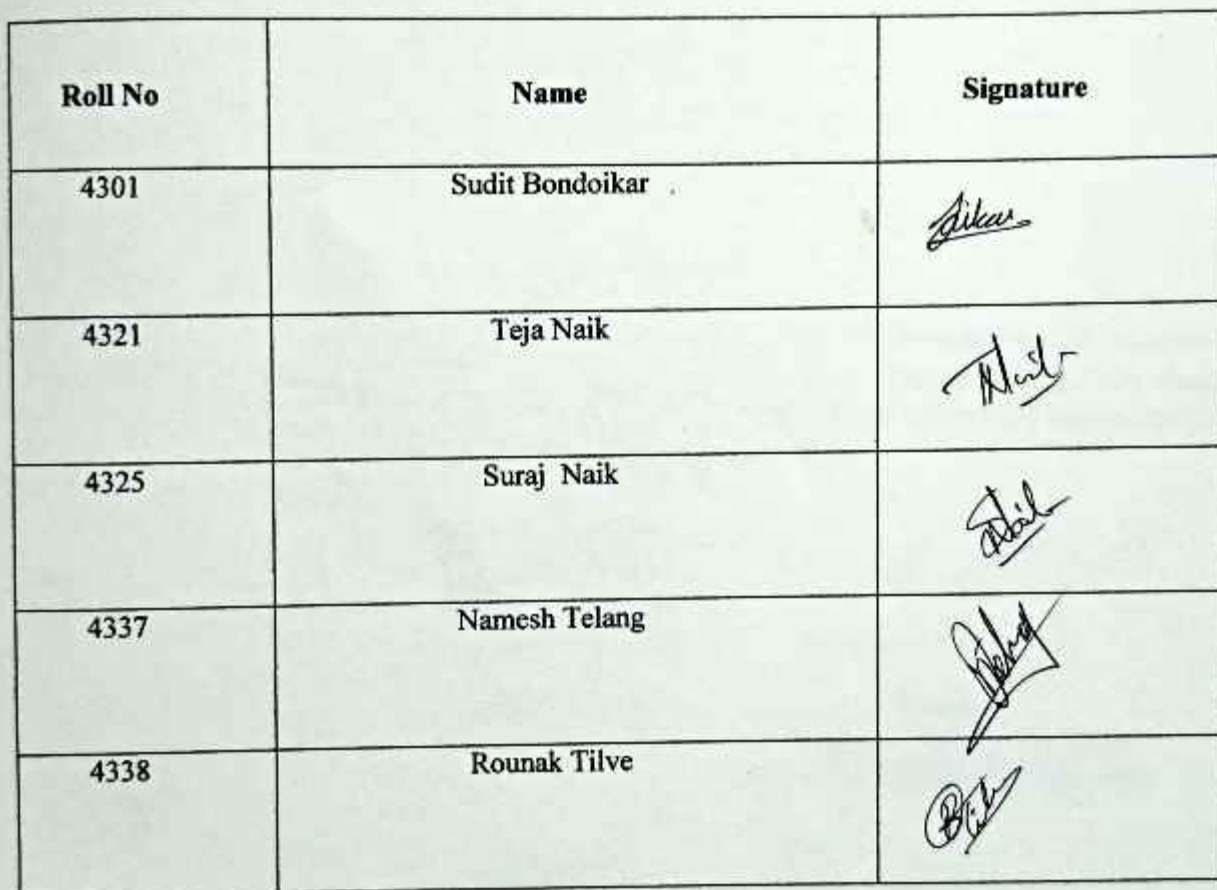 Roll No Name Signature
4301 Sudit Bondoikar
4321 Teja Naik TNaik
4325 Suraj Naik SNaik
4337 Namesh Telang
4338 Rounak Tilve